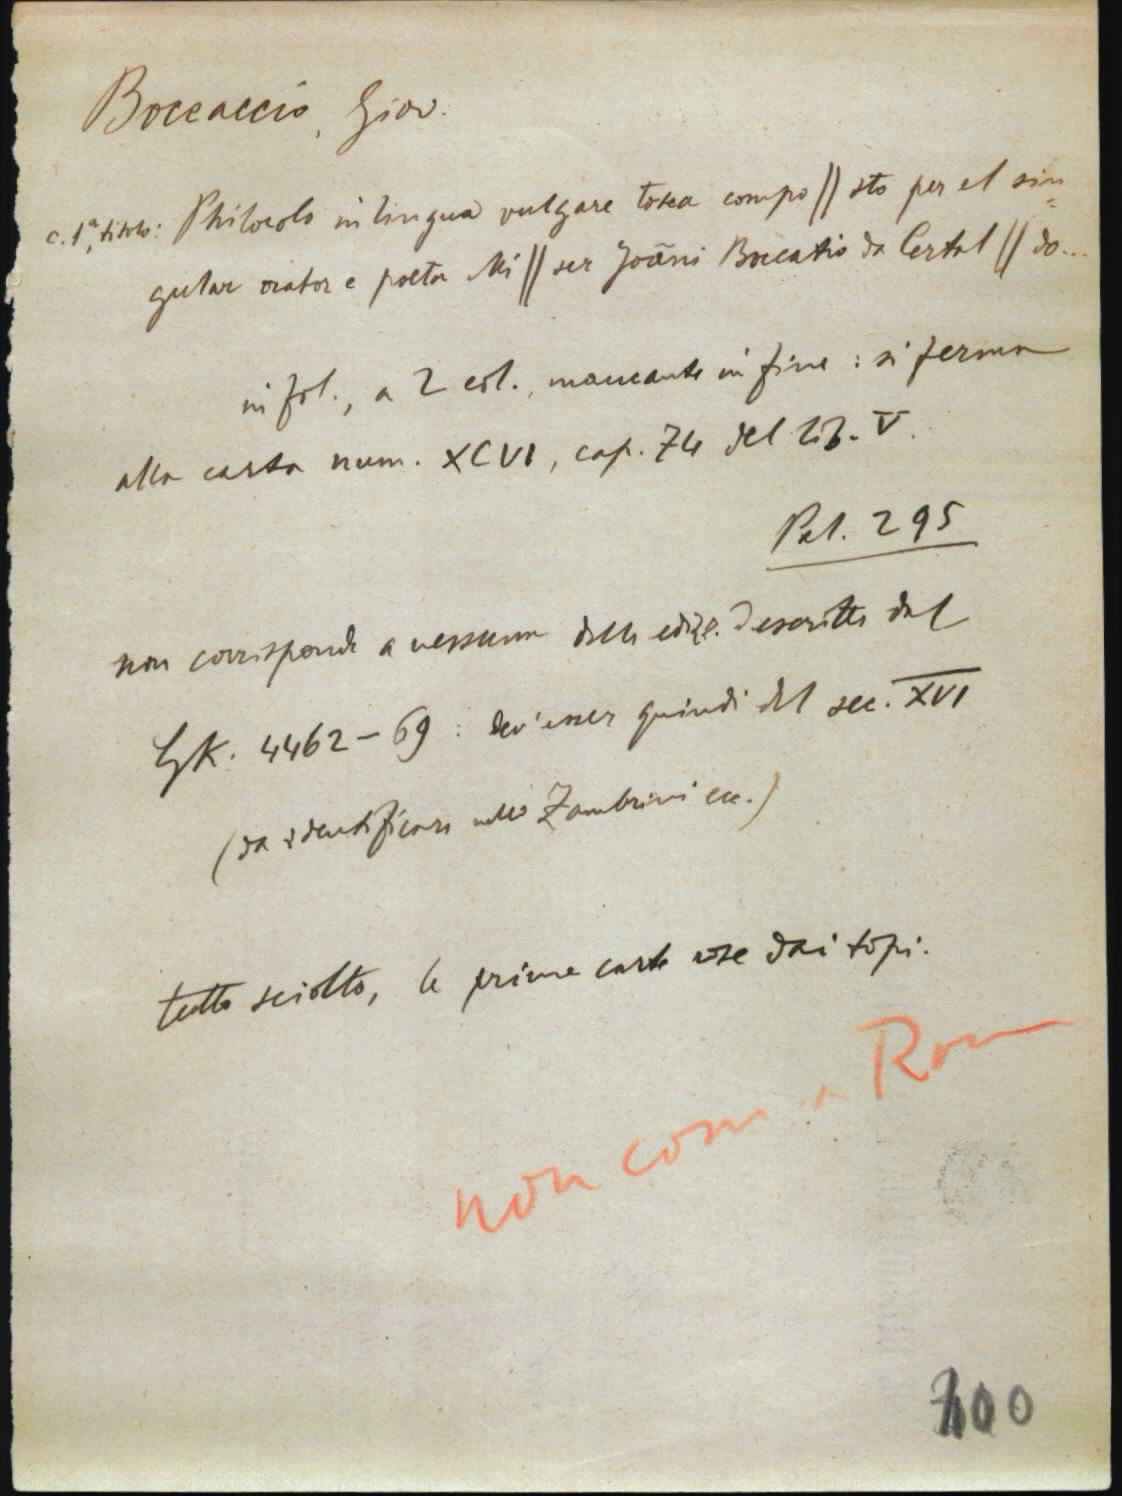 Boccaccio, Giov.
c. 1ª, titolo: Philocolo in lingua vulgare tosca compo || sto per el sin=
gular orator e poeta Mi || ser Joāni Boccatio da Certal || do...
in fol., a 2 col., mancante in fine : si ferma
alla carta num. XCVI, cap. 74 del lib. V.
Pal. 295
non corrisponde a nessuna delle ediz. descritte dal
GK. 4462-69 : dev'esser quindi del sec. XVI
(da identificare nello Zambrini ecc.)
tutto sciolto, le prime carte rose dai topi.
non com a Roma
100